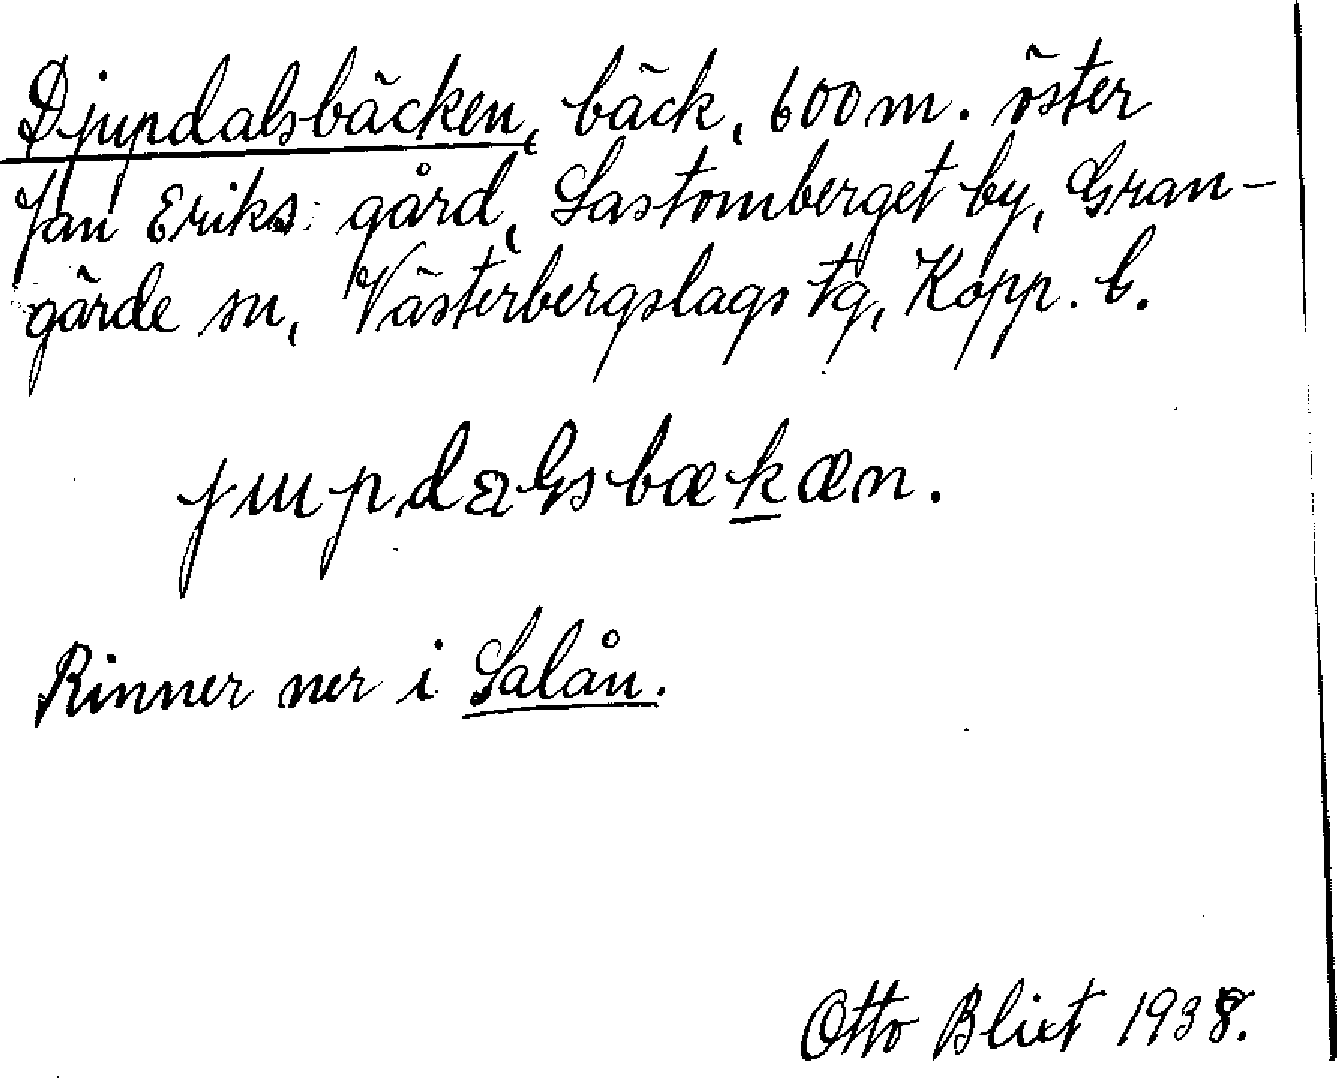 Djupdalsbäcken, bäck, 600 m. öster
Jan Eriks gård, Lastomberget by, Gran-
gärde sn, Västerbergslags tg, Kopp. l.
jupdalsbækæn.
Rinner ner i Salån.
Otto Blixt 1938.